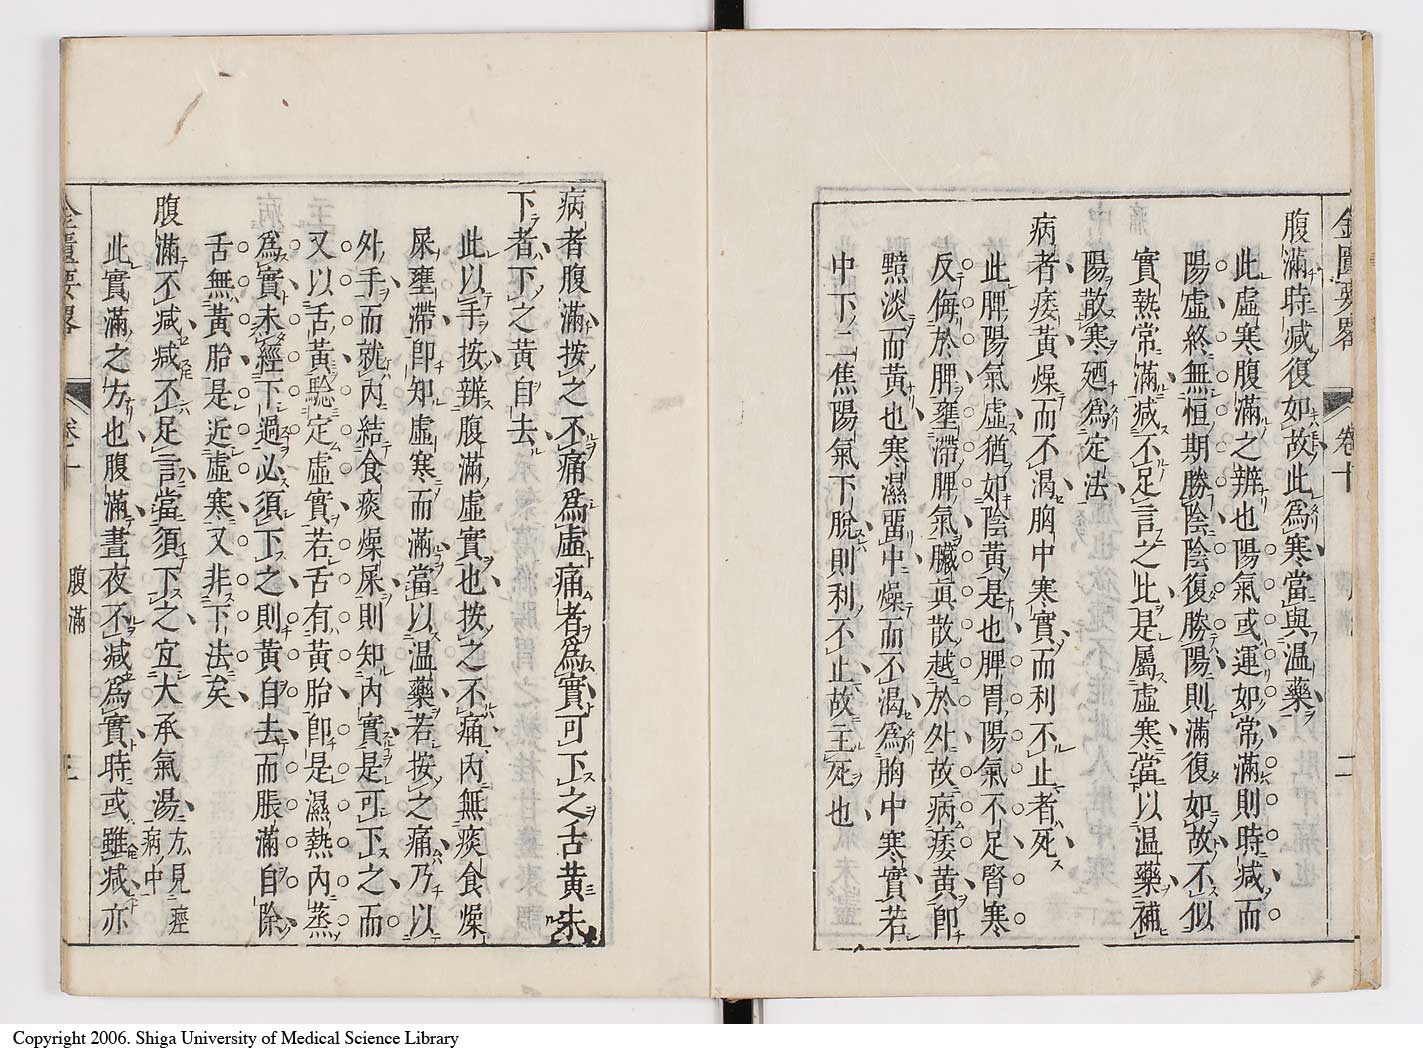 金匱要畧 卷十 二
腹滿時減復如故此爲寒當與温藥
此虛寒腹滿之辨也陽氣或運如常滿則時減而
陽虛終無恒期勝陰陰復勝陽則滿復如故不似
實熱常滿減不足言之此是屬虛寒當以温藥補
陽散寒廼爲定法
病者痿黃燥而不渴胸中寒實而利不止者死
此脾陽氣虛猶如陰黃是也脾胃陽氣不足腎寒
反侮於脾壅滯脾氣臟眞散越於外故病痿黃卽
黯淡而黃也寒濕畱中燥而不渴爲胸中寒實若
中下二焦陽氣下脫則利不止故主死也
病者腹滿按之不痛爲虛痛者爲實可下之舌黃未
下者下之黃自去
此以手按辨腹滿虛實也按之不痛内無痰食燥
屎壅滯卽知虛寒而滿當以温藥若按之痛乃以
外手而就内結食痰燥屎則知内實是可下之而
又以舌黃驗定虛實若舌有黃胎卽是濕熱内蒸
爲實未經下過必須下之則黃自去而脹滿自除
舌無黃胎是近虛寒又非下法矣
腹滿不減減不足言當須下之宜大承氣湯方見痙病中
此實滿之方也腹滿晝夜不減爲實時或雖減亦
金匱要畧 卷十 腹滿 三
Copyright 2006. Shiga University of Medical Science Library